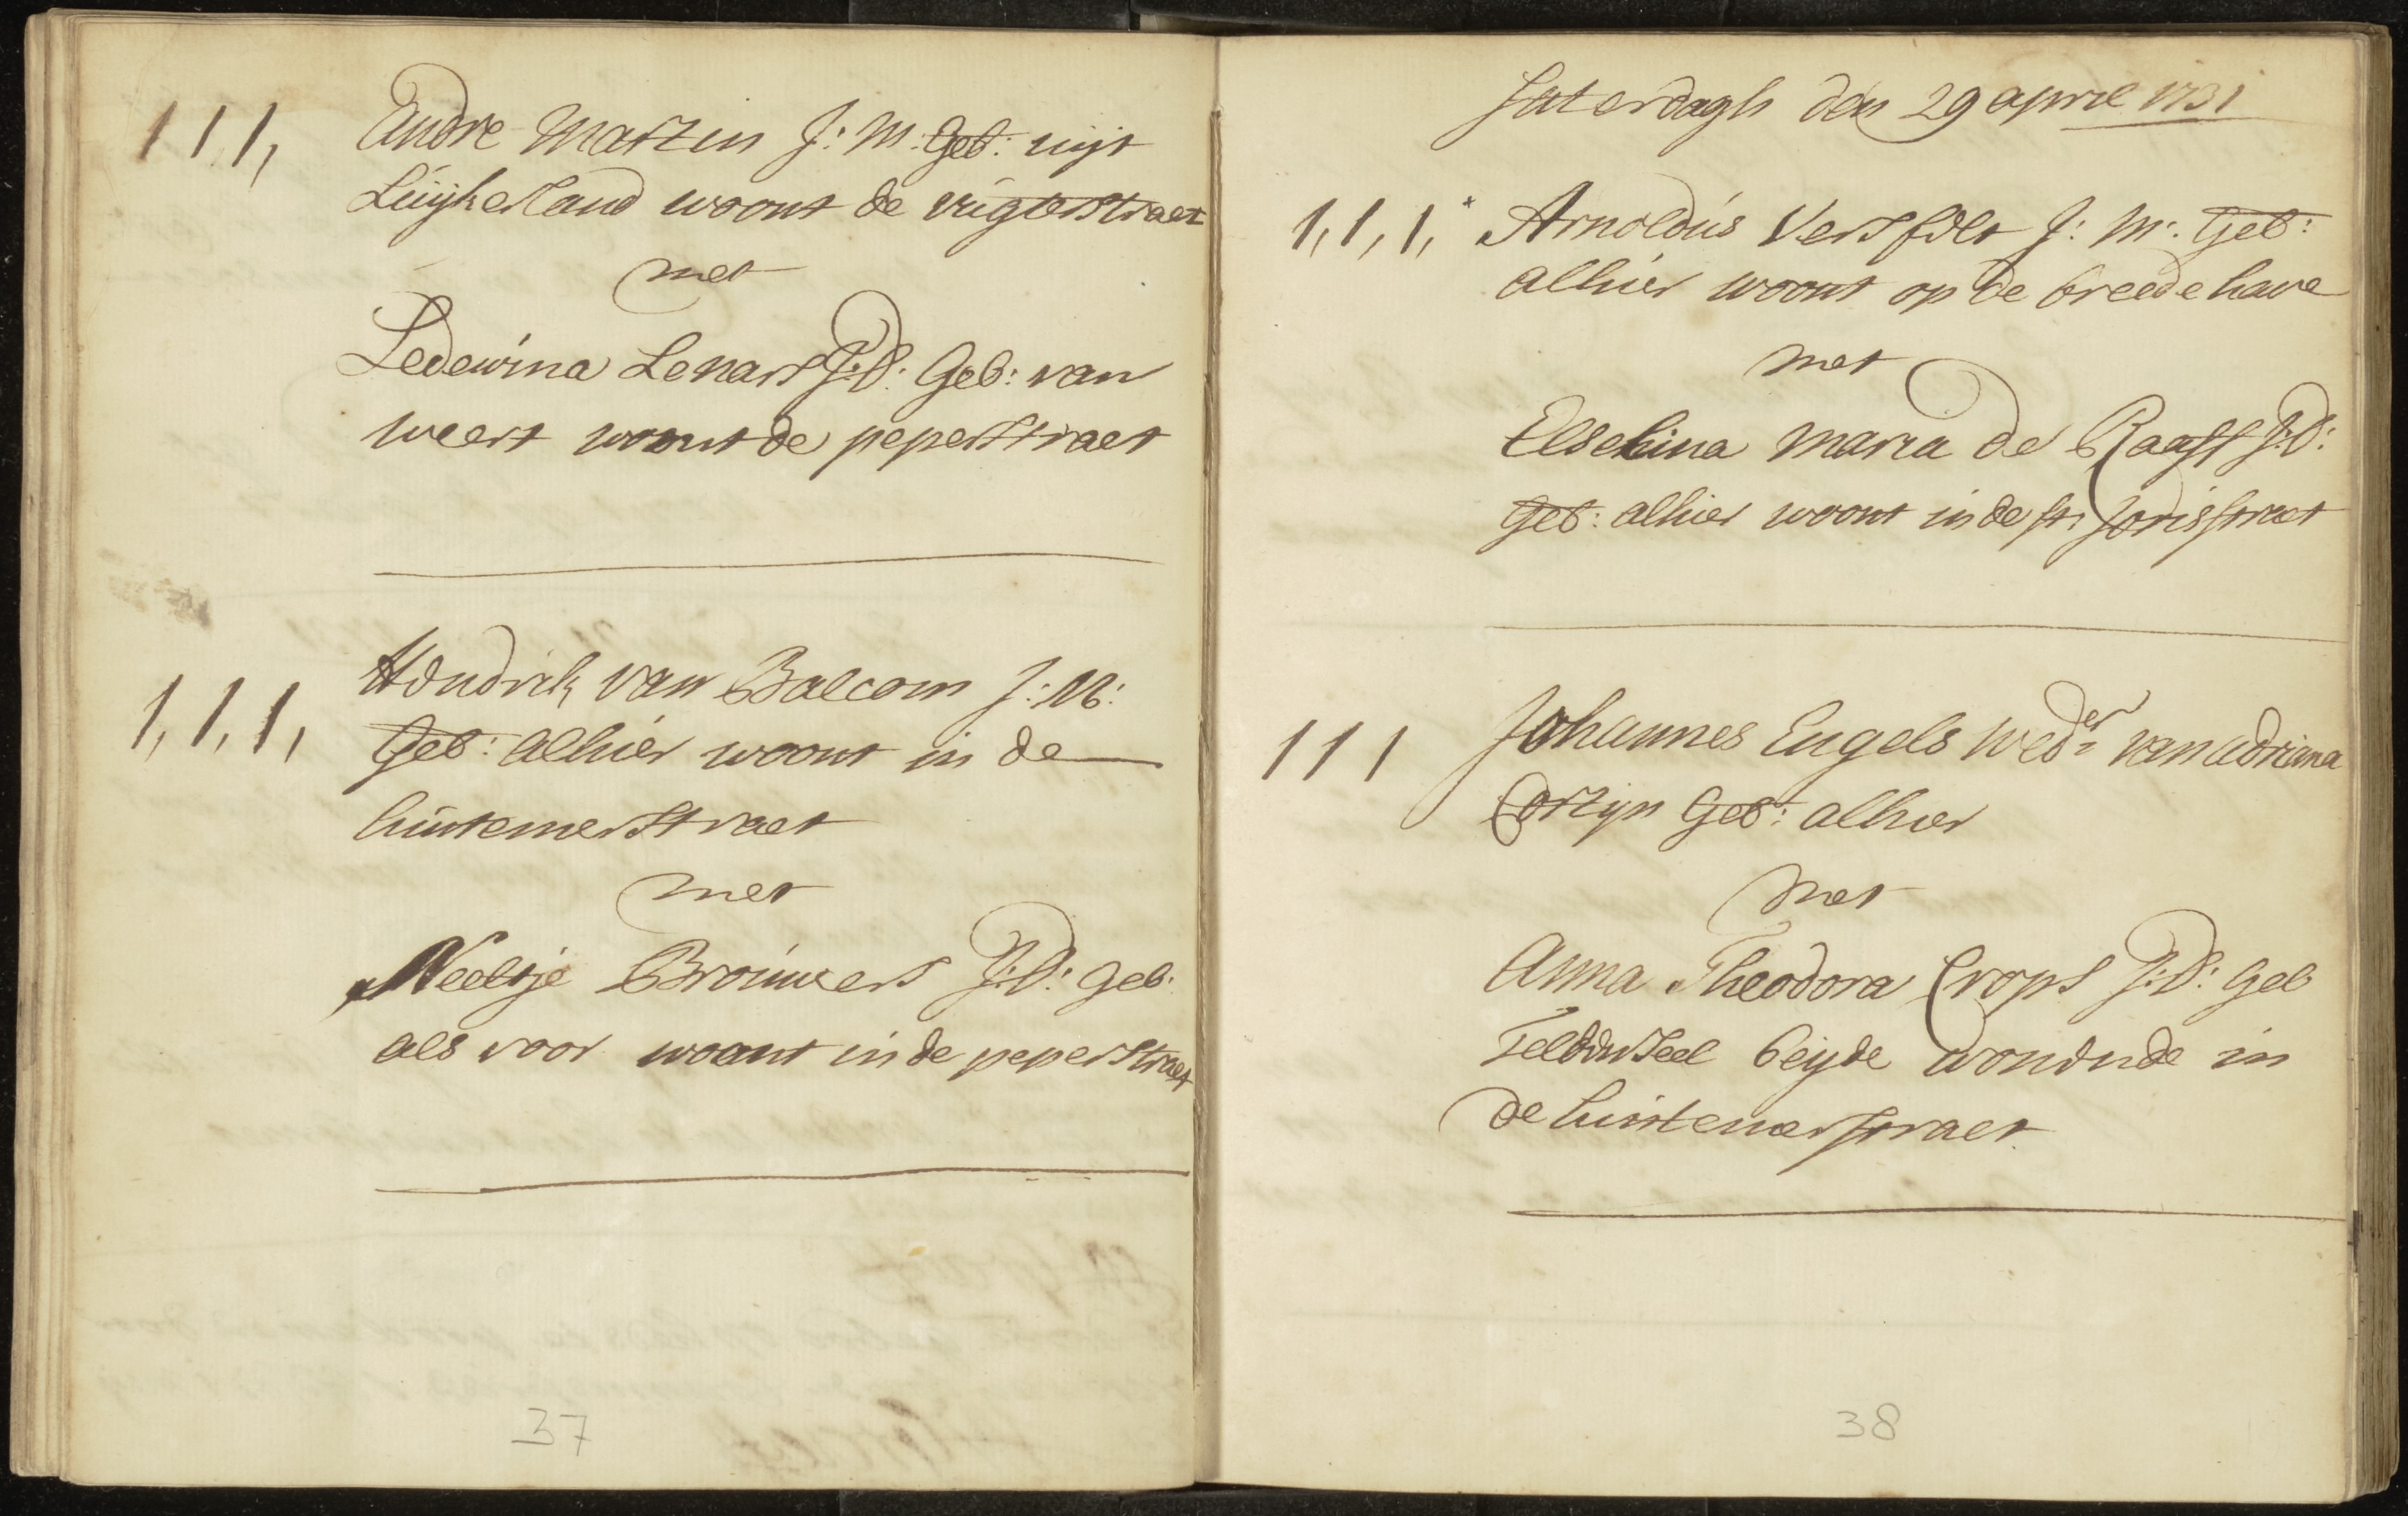 111, Andre Martin J: M: Geb: uijt
Luijkerland woont de vugterstraet
met
Ledewina Lenars J:D: Geb: van
weert woont de peperstraet
1,1,1, Hendrik van Balcom J: M:
Geb: alhier woont in de
hintemerstraet
met
Neeltje Brouwers J:D: geb:
als voor woont in de peperstraet
37
Saterdagh den 29 april 1731
1,1,1, Arnoldus Versfelt J: M: Geb:
alhier woont op de breede have
met
Elsekina Maria de Raaff J:D:
Geb: alhier woont in de st: Jorisstraet
111 Johannes Engels wed:er van adriana
Cortijn Geb: alhier
met
Anna Theodora Crops J:D: geb
beyde wonende in
de hintemerstraet
38